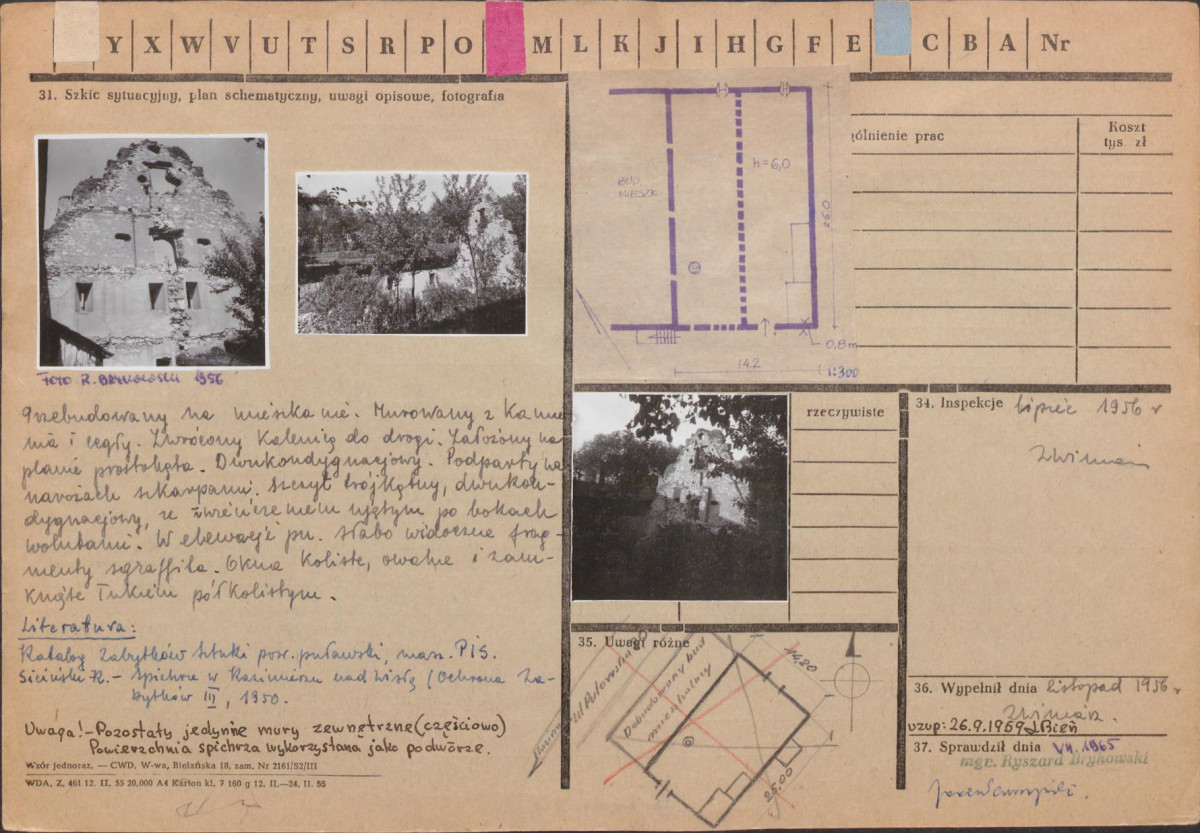 Y X W V U T S R P O M L K J I H G F E C B A Nr
31. Szkic sytuacyjny, plan schematyczny, uwagi opisowe, fotografia
FOTO R. BRYKOWSKI 1956
przebudowany na mieszkanie. Murowany z kamie
nia i cegły. Zwrócony kalenicą do drogi. Założony na
planie prostokąta. Dwukondygnacjowy. Podparty na
narożach szkarpami. Szczyt trójkątny, dwukon-
dygnacjowy, ze zwieńczeniem ujętym po bokach
wolutami. W elewacji pn. słabo widoczne frag-
menty sgraffita. Okna koliste, owalne i zam-
knięte łukiem półkolistym.
Literatura:
Katalog Zabytków Sztuki pow. puławski, masz. PIS.
Siciński R. – Spichrze w Kazimierzu nad Wisłą (Ochrona Za-
bytków III, 1950.
Uwaga! – Pozostały jedynie mury zewnętrzne (częściowo)
Powierzchnia spichrza wykorzystana jako podwórze.
Wzór jednoraz. — CWD, W-wa, Bielańska 18, zam. Nr 2161/S2/III
WDA. Z. 461 12. II. 55 20,000 A4 Karton kl. 7 160 g 12. II.—24. II. 55
BUD.
MIESZK.
h=6,0
25.0
0,8 m
14.2
1:300
gólnienie prac
Koszt
tys. zł
rzeczywiste
34. Inspekcje lipiec 1956 r
35. Uwagi różne
ul Puławska
Dobudowany bud
mieszkalny
14,20
25.00
36. Wypełnił dnia listopad 1956 r
uzup: 26.9.1959 J.Bień
37. Sprawdził dnia VII. 1965
mgr. Ryszard Brykowski